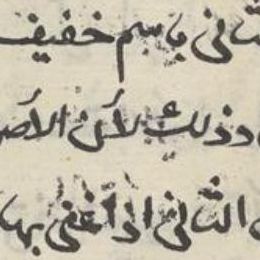 ثانى باسم خفيف
وذلك لأن الأصل
الثانى اذا غنى بها